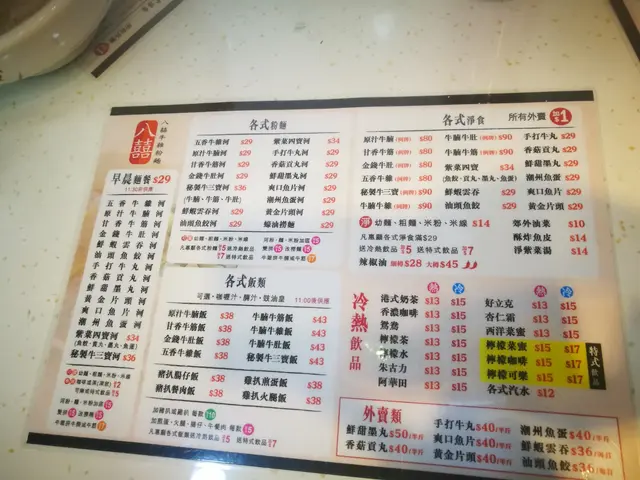 八囍
八囍牛雜粉麵
早晨麵餐 $29
11:30前供應
五香牛雜河
原汁牛腩河
甘香牛筋河
金錢牛肚河
鮮蝦雲吞河
汕頭魚餃河
手打牛丸河
香菇貢丸河
鮮甜墨丸河
爽口魚片河
黃金片頭河
潮州魚蛋河
紫菜四寶河 $34
(魚餃, 貢丸, 墨丸, 魚蛋)
秘製牛三寶河 $36
各式粉麵
五香牛雜河 $29
原汁牛腩河 $29
甘香牛筋河 $29
金錢牛肚河 $29
秘製牛三寶河 $36
(牛腩、牛筋、牛肚)
鮮蝦雲吞河 $29
汕頭魚餃河 $29
紫菜四寶河 $34
手打牛丸河 $29
香菇貢丸河 $29
鮮甜墨丸河 $29
爽口魚片河 $29
潮州魚蛋河 $29
黃金片頭河 $29
蠔油撈麵 $29
各式飯類
可選、咖喱汁、腩汁、豉油皇 11:00後供應
原汁牛腩飯 $38
甘香牛筋飯 $38
金錢牛肚飯 $38
五香牛雜飯 $38
牛腩牛筋飯 $43
牛腩牛雜飯 $43
牛腩牛肚飯 $43
秘製牛三寶飯 $43
豬扒腸仔飯 $38
豬扒餐肉飯 $38
雞扒煎蛋飯 $38
雞扒火腿飯 $38
各式淨食
所有外賣 加$1
原汁牛腩 $80
甘香牛筋 $80
金錢牛肚 $80
五香牛雜 $80
秘製牛三寶 $90
牛腩牛雜 $90
牛腩牛肚 $90
牛腩牛筋 $90
紫菜四寶 $34
(魚餃、貢丸、墨丸、魚蛋)
鮮蝦雲吞 $29
汕頭魚餃 $29
手打牛丸 $29
香菇貢丸 $29
鮮甜墨丸 $29
潮州魚蛋 $29
爽口魚片 $29
黃金片頭 $29
淨 幼麵、粗麵、米粉、米線 $14
凡惠顧各式淨食滿$29
送冷熱飲品 $5 送特式飲品 $7
辣椒油 細樽 $28 大樽 $45
郊外油菜 $10
酥炸魚皮 $14
淨紫菜湯 $14
冷熱飲品
熱 冷
港式奶茶 $13 $15
香濃咖啡 $13 $15
鴛鴦 $13 $15
檸檬茶 $13 $15
檸檬水 $13 $15
朱古力 $13 $15
阿華田 $13 $15
熱 冷
好立克 $13 $15
杏仁霜 $13 $15
西洋菜蜜 $13 $15
檸檬菜蜜 $15 $17
檸檬咖啡 $15 $17
檸檬可樂 $15 $17
特式飲品
各式汽水 $12
外賣類
鮮甜墨丸 $50/半斤
香菇貢丸 $40/半斤
手打牛丸 $40/半斤
爽口魚片 $40/半斤
黃金片頭 $40/半斤
潮州魚蛋 $40/半斤
鮮蝦雲吞 $36
汕頭魚餃 $36